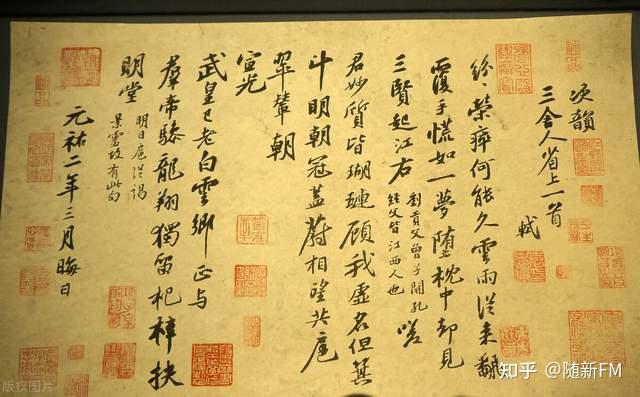 次韻
三舍人省上一首
軾
紛〻榮瘁何能久雲雨從來翻
覆手慌如一夢墮枕中却見
三賢起江右
劉貢父曾子開孔
經父皆江西人也
嗟
君妙質皆瑚璉顧我虛名但箕
斗明朝冠蓋蔚相望共扈
翠輦朝
宣光
武皇已老白雲鄉正與
羣帝驂龍翔獨留杞梓扶
明堂
明日扈從謁
景靈故有此句
元祐二年三月晦日
版权图片
知乎 @随新FM